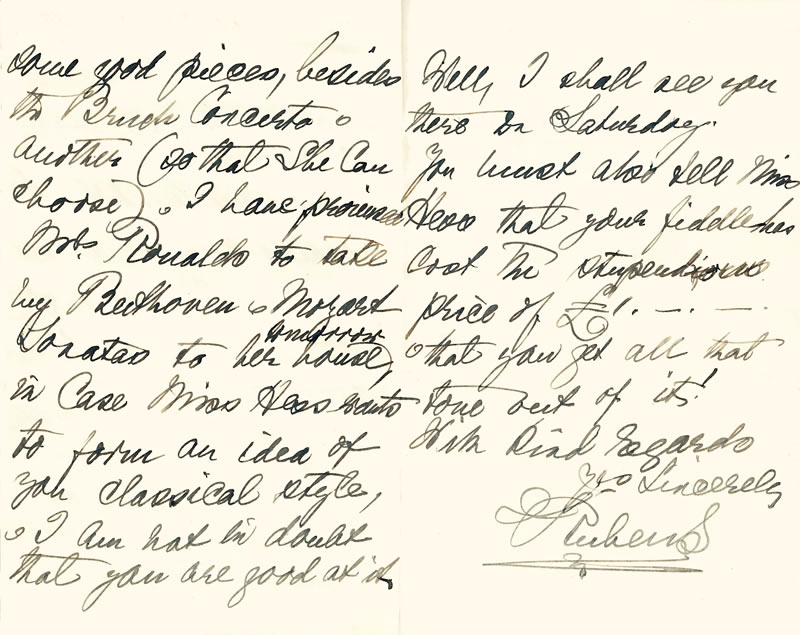 some good pieces, besides
the Bruch Concerto &
another (so that She Can
choose). I have promised
Mrs. Ronalds to take
my Beethoven & Mozart
Sonatas to her house, tomorrow
in Case Miss Hess wants
to form an idea of
your classical style,
& I am not in doubt
that you are good at it.
Well, I shall see you
there on Saturday.
You must also tell Miss
Hess that your fiddle has
cost the stupendious
price of £1.—.—
& that you get all that
tone out of it!
With Kind Regards
Yrs Sincerely
Rubens